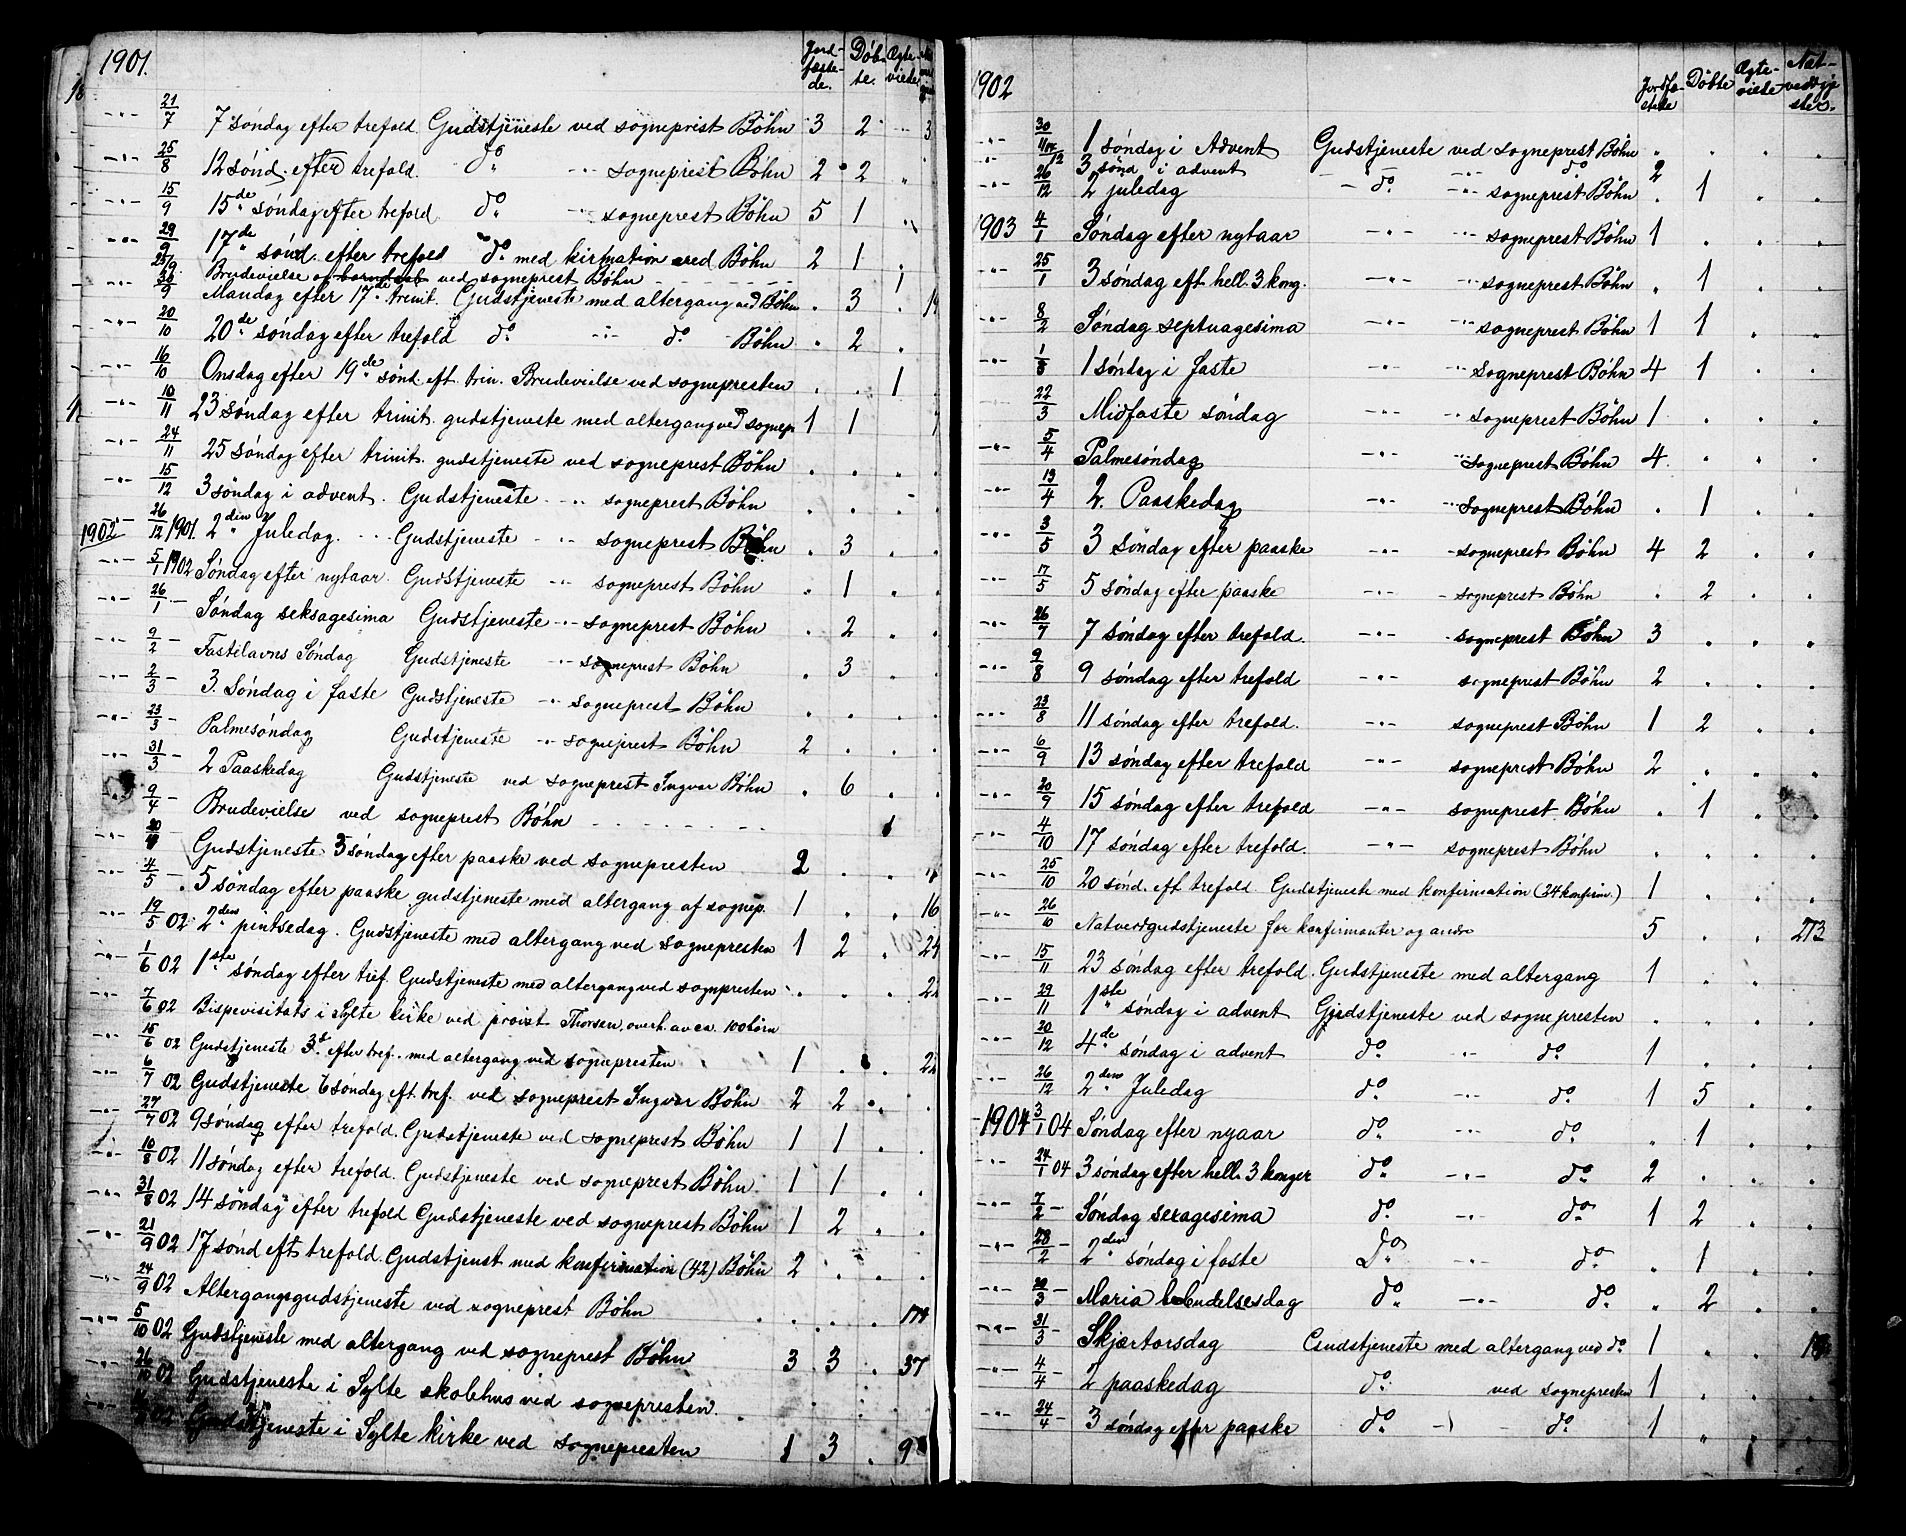 1901.
Jord-
fæste-
de.
Døb-
te.
Ægte-
viede
-"- 21/7 7 søndag efter trefold Gudstjeneste ved sogneprest Bøhn 3 2 " 3
-"- 25/8 12 sønd. efter trefold. do -"- sogneprest Bøhn 2 2 "
-"- 15/9 15de søndag efter trefold do -"- sogneprest Bøhn 5 1 "
-"- 29/9 17de sønd. efter trefold do med kirmation ved Bøhn 2 1 "
Brudevielse og barndaab ved sogneprest Bøhn - - - 1
30/9 Mandag efter 17de trinit. Gudstjeneste med altergang ved Bøhn " 3 "
-"- 20/10 20de søndag efter trefold do -"- do Bøhn " 2 "
-"- 16/10 Onsdag efter 19de sønd eft. trin. Brudevielse ved sognepresten " " 1
-"- 10/11 23 søndag efter trinit. gudstjeneste med altergang ved sognepr 1 1
-"- 24/11 25 søndag efter trinit. gudstjeneste ved sogneprest Bøhn " " " "
-"- 15/12 3 søndag i advent. Gudstjeneste -"- sogneprest Bøhn " " " "
1902 26/12 1901. 2den Juledag. Gudstjeneste -"- sogneprest Bøhn " 3 " "
-"- 5/1 1902 Søndag efter nytaar. Gudstjeneste -"- sogneprest Bøhn " 1 " "
-"- 26/1 - Søndag seksagesima Gudstjeneste -"- sogneprest Bøhn " 2 " "
-"- 9/2 - Fastelavns Søndag Gudstjeneste -"- sogneprest Bøhn " 3 " "
-"- 2/3 - 3. Søndag i faste Gudstjeneste -"- sogneprest Bøhn " " " "
-"- 23/3 - Palmesøndag Gudstjeneste -"- sogneprest Bøhn 2 " " "
-"- 31/3 - 2 Paaskedag Gudstjeneste ved sogneprest Ingvar Bøhn " 6 " "
9/4 - Brudevielse ved sogneprest Bøhn - - - 1
-"- 20/4 Gudstjeneste 3 søndag efter paaske ved sognepresten 2 " "
-"- 4/5 - 5 søndag efter paaske gudstjeneste med altergang af sognep. 1 " " 16
-"- 19/5 02 2den pintsedag. Gudstjeneste med altergang ved sognepresten 1 2 " 24
-"- 1/6 02 1ste søndag efter tref. Gudstjeneste med altergang ved sognpresten " " " 22
-"- 7/6 02 Bispevisitats i Sylte kirke ved provst Thorsen, overh. av ca. 100 børn
-"- 15/6 02 Gudstjeneste 3d. efter tref. med altergang ved sognepresten 1 " " 22
-"- 6/7 02 Gudstjeneste 6 søndag eft. tref. ved sogneprest Ingvar Bøhn 2 2 " "
-"- 27/7 02 9 søndag efter trefold. Gudstjeneste ved sogneprest Bøhn 1 1 " "
-"- 10/8 02 11 søndag efter trefold. Gudstjeneste ved sogneprest Bøhn. 1 1 " "
-"- 31/8 02 14 søndag efter trefold Gudstjeneste ved sogneprest Bøhn 1 2 " "
-"- 21/9 02 17 sønd eft trefold. Gudstjenst med konfirmation (42) Bøhn 2 " " "
-"- 24/9 02 Altergangsgudstjeneste ved sogneprest Bøhn " " " 174
-"- 5/10 02 Gudstjeneste med altergang ved sogneprest Bøhn 3 3 " 37
-"- 26/10 02 Gudstjeneste i Sylte skolehus ved sognepresten.
Gudstjeneste i Sylte kirke ved sognepresten 1 3 " 9
1902
Jordfæ-
stede
Døbte
Ægte-
viede
Nat-
verdgje
ster.
-"- 30/11 1 søndag i Advent Gudstjeneste ved sogneprest Bøhn " " " "
-"- 14/12 3 sønd i advent -"- do 2
-"- 26/12 2 juledag - do -"- sogneprest Bøhn " 1 " "
1903 4/1 Søndag efter nytaar -"- -"- sogneprest Bøhn 1 " " "
-"- 25/1 3 søndag eft hell. 3 kong. -"- -"- sogneprest Bøhn " 1 " "
-"- 8/2 Søndag septuagesima -"- -"- sogneprest Bøhn 1 1 " "
-"- 1/3 1 søndag i faste -"- sogneprest Bøhn 4 1 " "
-"- 22/3 Midfaste søndag -"- sogneprest Bøhn 1 " " "
-"- 5/4 Palmesøndag -"- sogneprest Bøhn 4. " " "
-"- 13/4 2. Paaskedag -"- sogneprest Bøhn " 1 " "
-"- 3/5 3 søndag efter paaske -"- sogneprest Bøhn 4 2 " "
-"- 17/5 5 søndag efter paaske -"- sogneprest Bøhn " 2 " "
-"- 26/7 7 søndag efter trefold. -"- sogneprest Bøhn 3 " " "
-"- 9/8 9 søndag efter trefold -"- sogneprest Bøhn 2 " " "
-"- 23/8 11 søndag efter trefold. -"- sogneprest Bøhn 1 2 " "
-"- 6/9 13 søndag efter trefold -"- sogneprest Bøhn 2 " " "
-"- 20/9 15 søndag efter trefold -"- sogneprest Bøhn " 1 " "
-"- 4/10 17 søndag efter trefold. -"- sogneprest Bøhn " " " "
-"- 25/10 20 sønd. eft trefold Gudstjeneste med konfirmation (24 konfirm.) 1 " " "
-"- 26/10 Natverdgudstjeneste for konfirmanter og andre 5 " " 273
-"- 15/11 23 søndag efter trefold. Gudstjeneste med altergang 1 " "
-"- 29/11 1ste søndag i advent Gudstjeneste ved sognepresten " " " "
-"- 20/12 4de søndag i advent do -"- do 1 " " "
-"- 26/12 2den Juledag do -"- do 1 5 " "
1904 3/1 04 Søndag efter nyaar do -"- do " 1 " "
-"- 24/1 04 3 søndag efter hell. 3 konger do -"- do 2 " " "
-"- 7/2 - Søndag sexagesima do -"- do 1 2 " "
-"- 28/2 2den søndag i faste Do -"- do " 1 " "
-"- 20/3 Maria bebudelsesdag do -"- do " 2 " "
-"- 31/3 Skjærtorsdag Gudstjeneste med altergang ved do 1 " "
-"- 4/4 2 paaskedag do ved sognepresten 1 " " "
-"- 24/4 3 søndag efter paaske do -"- do 1 " " "